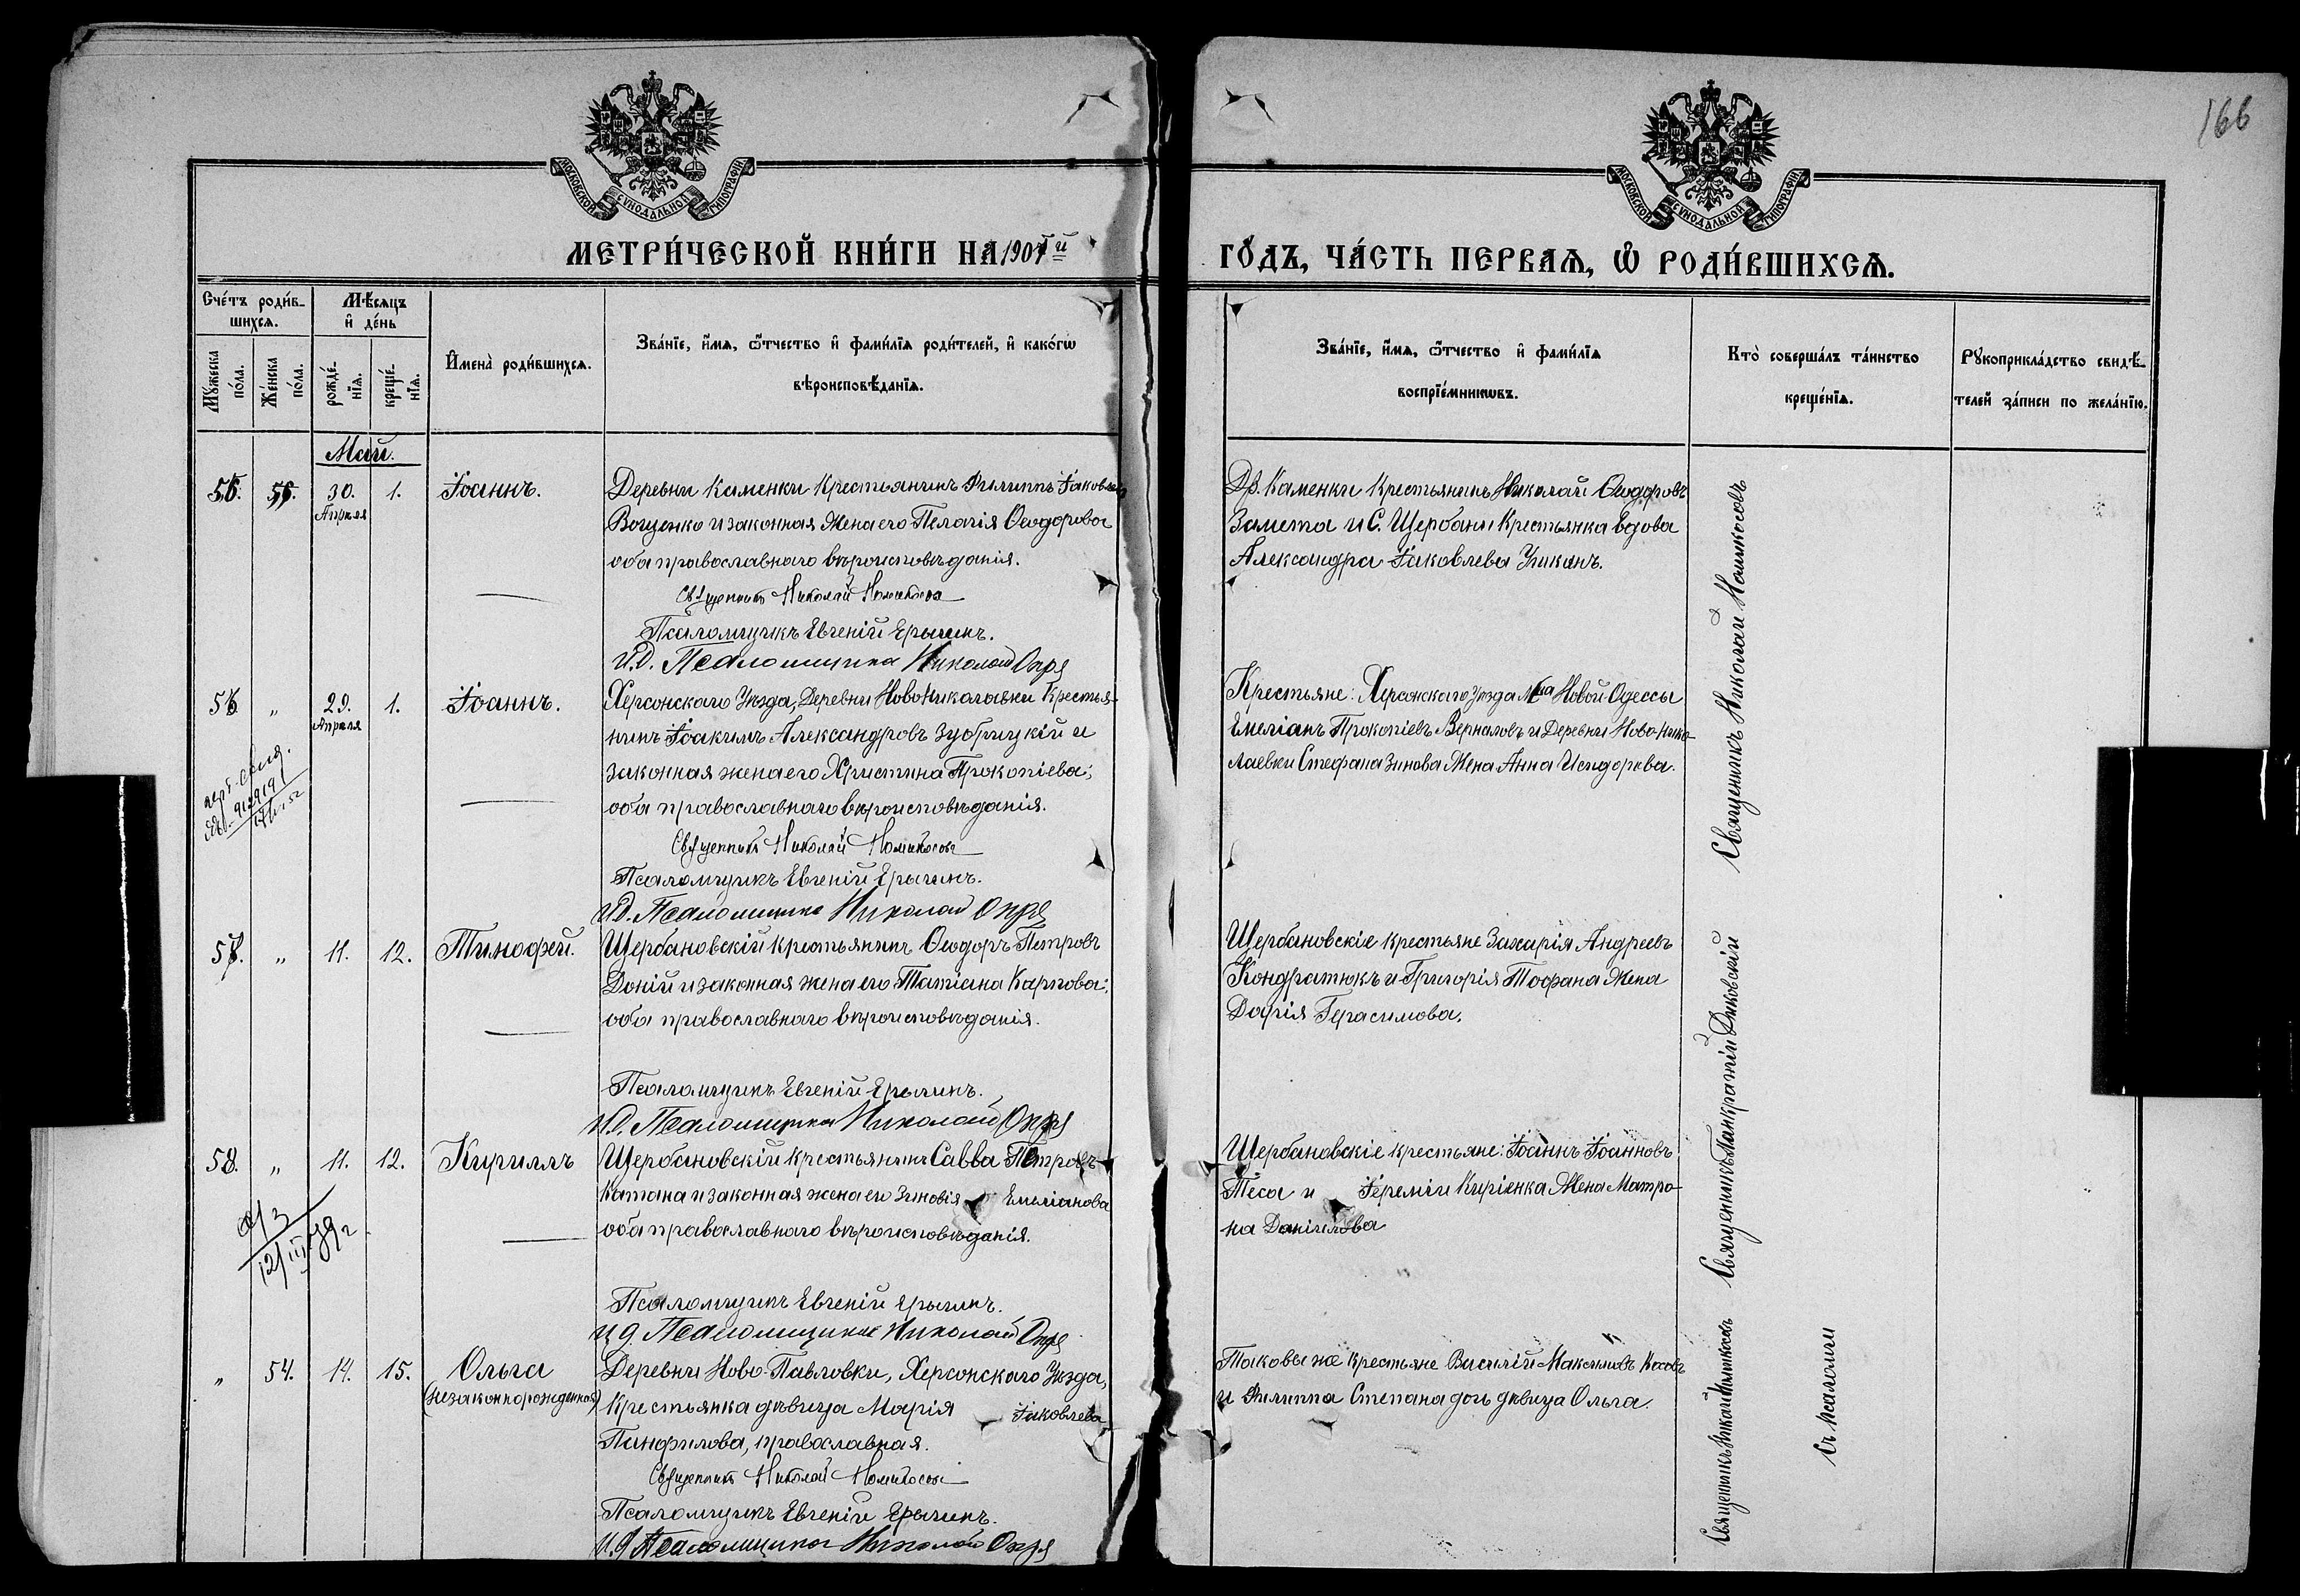 166
МОСКОВСКОЙ СУНОДАЛЬНОЙ ТИПОГРАФІИ
МОСКОВСКОЙ СУНОДАЛЬНОЙ ТИПОГРАФІИ
МЕТРИ́ЧЕСКОЙ КНИ́ГИ НА 1904 й
ГО́ДЪ, ЧА́СТЬ ПЕРВАѦ, Ѡ РОДИ́ВШИХСѦ.
Сче́тъ роди́в-
шихсѧ.
Мѣ́сѧцъ
и де́нь
Мꙋжеска по́ла.
Же́нска по́ла.
рожде́нїѧ.
креще́нїѧ.
Имена̀ роди́вшихсѧ.
Зва́нїе, и́мѧ, ѻ́тчество и фами́лїѧ роди́телей, и како́гѡ
вѣроисповѣ́данїѧ.
Зва́нїе, и́мѧ, ѻ́тчество и фами́лїѧ
воспрїе́мникѡвъ.
Кто̀ соверша́лъ та́инство
креще́нїѧ.
Рꙋкоприкла́дство свидѣ́-
телей за́писи по жела́нїю.
Май.
30. Апрѣля 1. Іоаннъ.
Деревни Каменки Крестьянинъ Филиппъ Іаковлевъ
Вощенко и законная жена его Пелагія Ѳеодорова
оба православнаго вѣроисповѣданія.
Священникъ Николай
Псаломщикъ Евгеній Ерыгинъ.
И.д. Псаломщика Николай Опря
Дв. Каменки Крестьянинъ Николай Ѳеодоровъ
Замета и С. Щербани Крестьянка вдова
Александра Іаковлева
Священникъ Николай
56 „ 29. Апрѣля 1. Іоаннъ.
Херсонскаго Уѣзда, Деревни Ново Николаевки Крестья-
нинъ Іоакимъ Александровъ Зубрицкій и
законная жена его Христина Прокопіева;
оба православнаго вѣроисповѣданія.
Священникъ Николай
Псаломщикъ Евгеній Ерыгинъ.
И.д. Псаломщика Николай Опря
Крестьяне: Херсонскаго уѣзда М-ка Новой Одессы
Емеліанъ Прокопіевъ и Деревни Ново-Нико-
лаевки Стефана Зинова Жена Анна Исидорова.
57. „ 11. 12. Тимоѳей.
Щербановскій крестьянинъ Ѳеодоръ Петровъ
Доній и законная жена его Татіана Карпова;
оба православнаго вѣроисповѣданія.
Псаломщикъ Евгеній Ерыгинъ.
И.д. Псаломщика Николай Опря
Щербановскіе крестьяне Захарія Андреевъ
Кондратюкъ и Григорія Тофана Жена
Дарія Герасимова.
Священникъ Панкратій
58. „ 11. 12. Кириллъ
12/III 39 г
Щербановскій крестьянинъ Савва Петровъ
Катана и законная жена его Зиновія Емеліанова
оба православнаго вѣроисповѣданія.
Псаломщикъ Евгеній Ерыгинъ.
И.д. Псаломщика Николай Опря
Щербановскіе крестьяне: Іоаннъ Іоанновъ
Теса и Іереміи Киріенка Жена Матро-
на Даніилова
„ 54. 14. 15. Ольга
(незаконнорожденная)
Деревни Ново-Павловки, Херсонскаго Уѣзда,
Крестьянка дѣвица Марія Іаковлева
Панфилова, православная.
Священникъ Николай
Псаломщикъ Евгеній Ерыгинъ.
И.д. Псаломщика Николай Опря
Таковы же крестьяне Василій Максимовъ Косовъ
и Филиппа Степана дочь дѣвица Ольга.
Священникъ Николай
Съ Псаломщ